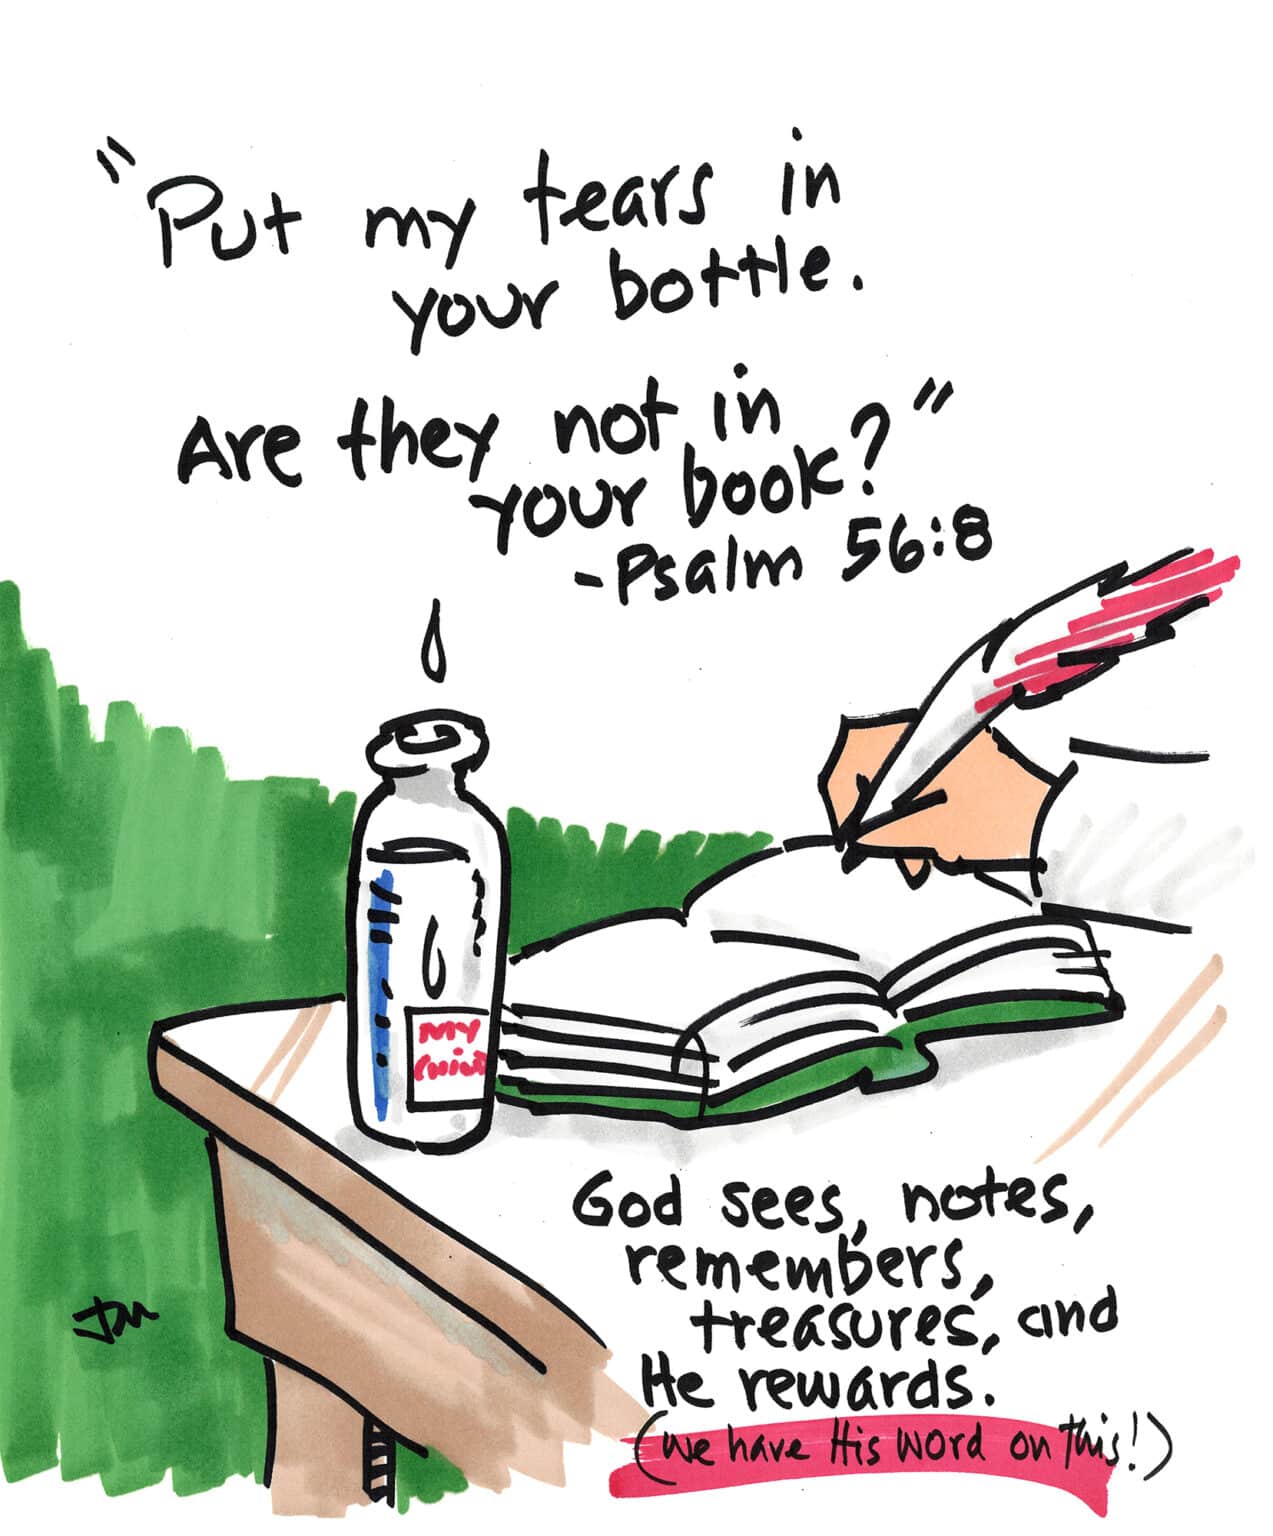 "Put my tears in
your bottle.
Are they not in
your book?"
-Psalm 56:8
MY
CHILD
God sees, notes,
remembers,
treasures, and
He rewards.
(we have His word on this!)
JM